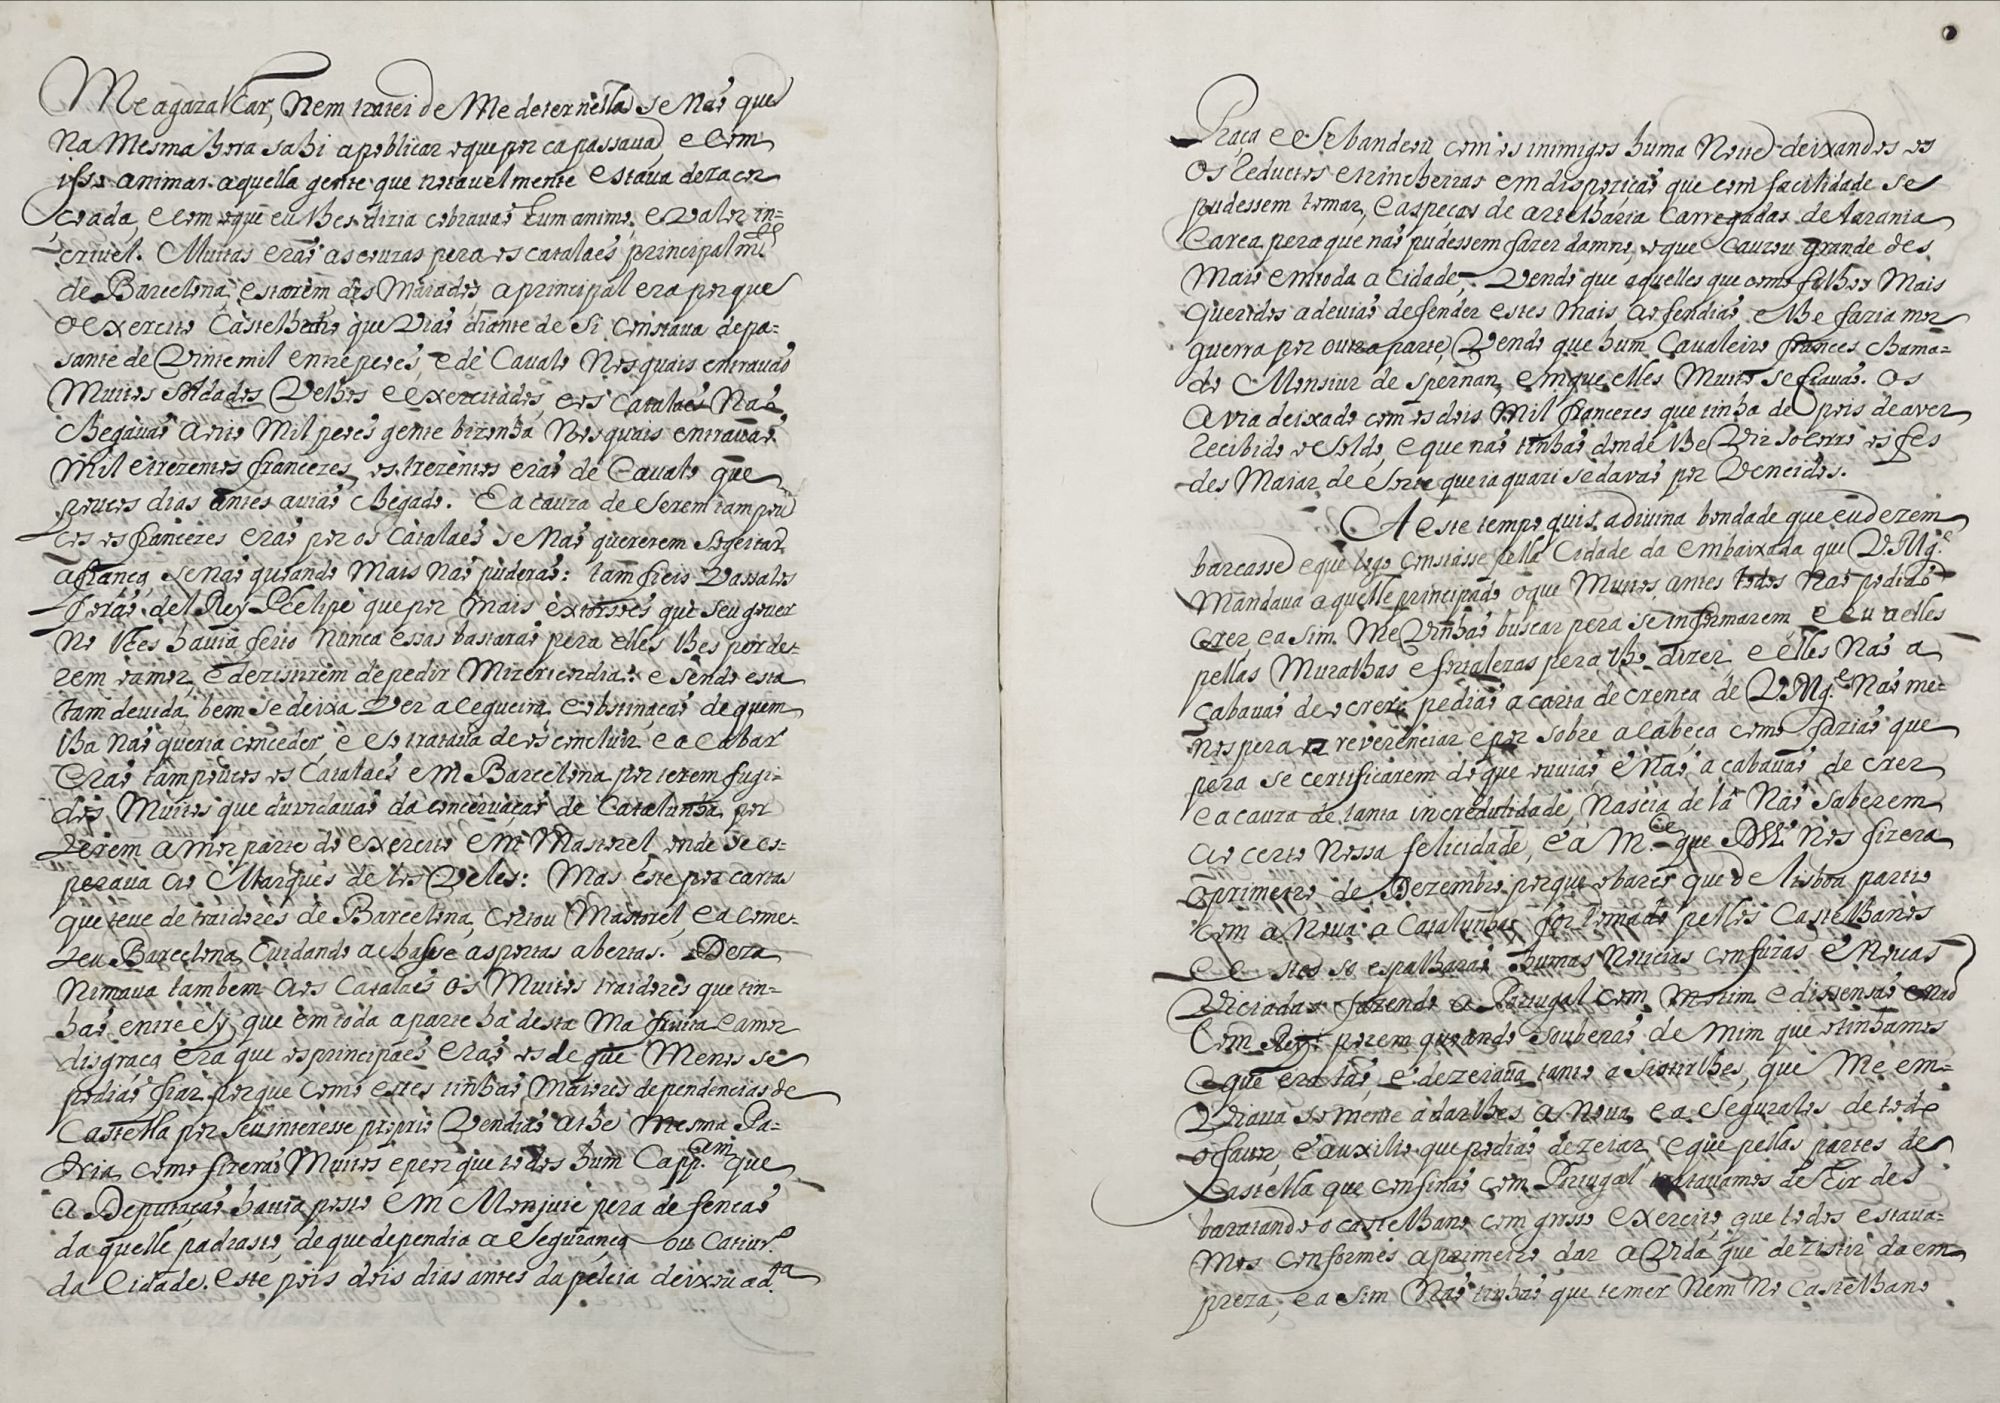 Me agazalhar, Nem tratei de Me deter nella, se Naõ que
Na Mesma hora sahi apoblicar oque por ca passaua, e com
isso animar aquella gente que notauelmente estaua dezacor
coada, e com oque eu lhes dizia cobrauaõ hum animo, e valor in=
criuel. Muitas eraõ as cauzas pera os catalaẽs principalm.te
de Barcelona, estarem desMaiados, a principal era porque
o exercito Castelhano que Viaõ diante de si constaua depa=
sante de Vinte mil entre peoẽs, e de Caualo Nos quais entrauaõ
Muitos Soldados Velhos e exercitados, e os Catalaẽs Naõ
chegauaõ a oito Mil peoẽs gente bizonha, Nos quais entrauaõ
Mil e trezentos francezes, os trezentos eraõ de Caualo que
poucos dias antes auiaõ chegado. E a cauza de Serem tam pou
cos os francezes eraõ por os Catalaẽs se Naõ quererem sogeitar
a frança, senaõ quando Mais Naõ puderaõ: tam fieis Vassalos
foraõ del Rey Phelipe que por mais extorsoẽs que seu gouer
No lhes hauia feito Nunca essas bastaraõ pera elles lhes perde=
rem o amor, e dezistirem de pedir Mizericordia: e sendo esta
tam deuida, bem se deixa Ver a cegueira, e obstinaçaõ de quem
lha naõ queria conceder, e so trataua de os concluir e a cabar
Eraõ tam poucos os Catalaẽs em Barcelona por terem fugi=
dos Muitos que duuidauaõ da concervaçaõ de Catalunha, por
terem a mor parte do exercito em Mastorel onde se es=
peraua ao Marques de los Veles: Mas este por cartas
que teue de traidores de Barcelona, cortou Mastorel, e a come=
teu Barcelona, Cuidando achasse as portas abertas. Deza
Nimaua tambem aos Catalaẽs os Muitos traidores que tin=
haõ entre sy, que em toda a parte ha desta Ma fruita, e a mor
disgraça era que os principaes eraõ os de que Menos se
podiaõ fiar, porque como estes tinhaõ Maiores dependencias de
Castella por seu interesse proprio Vendiaõ athe Mesma Pa=
tria, como fizeraõ Muitos e por que todos hum Capp.am que
a Deputaçaõ hauia posto em Monjuic pera defencaõ
da quelle padrasto, de que dependia a Segurança ou Catiur.o
da Cidade. este pois dois dias antes da peleia deixou a d.ta
Praça e se bandeou com os inimigos huma Noite deixandoos os
Os Reductos e trincheiras em dispoziçaõ que com facilidade se
pudessem tomar, e as peças de artelharia carregadas de tarania
Carca pera que naõ pudessem fazer damno, oque cauzou grande des
Maio em toda a Cidade, Vendo que aquelles que como filhos Mais
queridos a deuiaõ defender estes mais a ofendiaõ, e lhe faziam or
guerra por outra parte, Vendo que hum Caualeiro frances chama=
do Monsiur de spernan, em que elles Muito se fiauaõ. Os
avia deixado com os dois Mil francezes que tinha depois de aver
recibido o Soldo, e que naõ tinhaõ donde lhe Vir socorro os fes
des Maiar de sorte que ia quazi se dauaõ por Vencidos.
A este tempo quis a Divina bondade que eu dezem
barcasse e que logo constasse pella Cidade da embaixada que V Mg.e
Mandaua a quelle principado o que Muitos, antes todos Naõ podiaõ
crer, e a sim Me Vinhaõ buscar pera se informarem e eu a elles
pellas Muralhas e fortalezas pera lho dizer e elles Naõ a
cabauaõ de o crer, pediaõ a carta de crenca de V Mg.e Naõ me=
nos pera a reverenciar e por sobre a cabeça como faziaõ que
pera se certificarem do que ouuiaõ e Naõ a cabauaõ de crer
e a cauza de tanta incredulidade, Nascia de la Naõ saberem
ao certo Nossa felicidade, e a M.ce que Ds. Nos fizera
o primeiro de Dezembro porque o barco que de lisboa partio
com a Noua a Catalunha foi tomado pellos Castelhanos
e estes so espalharaõ humas Noticias confuzas e Nouas
Viciadas fazendo a Portugal com Motim, e dissensaõ e naõ
Com Rey: porem quando souberaõ de mim que o tinhamos
e que era taõ, e dezeiaua tanto a sistirlhes, que Me em=
Viaua somente a darlhes a Noua, e a Seguralos de todo
o fauor, e auxilio que podiaõ dezeiar, e que pellas partes de
Castella que confinaõ com Portugal tratauamos de hir des
baratando o castelhano com grosso exercito, que todos estaua=
Mos conformes a primeiro dar a Vida, que dezistir da em
preza, e a sim Naõ tinhaõ que temer Nem No Castelhano